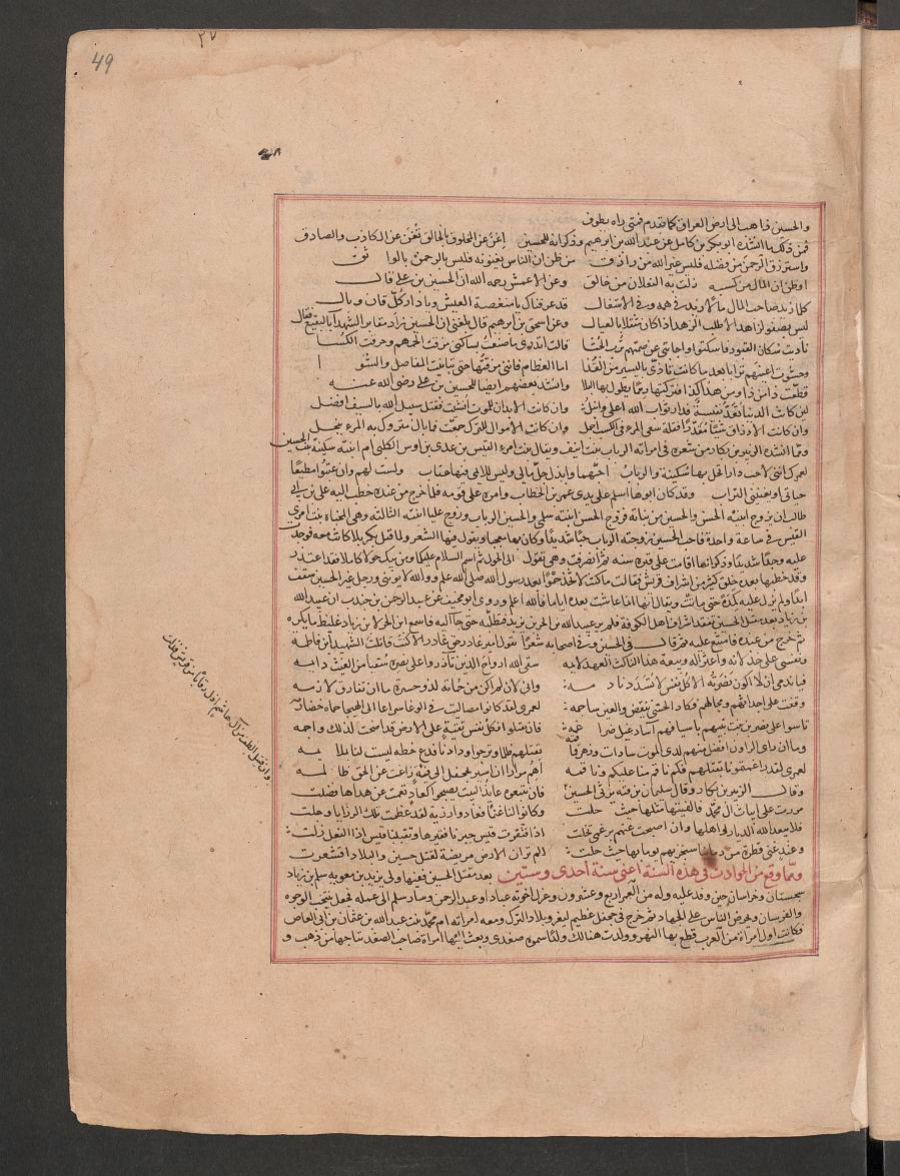 49
٢٧
والحسين ذاهب الى ارض العراق كما تقدم فمتى راه يطوف
فمن ذلك ما انشده ابو بكر بن كامل عن عبد الله بن ابرهيم وذكر انه للحسين اغن عن المخلوق بالخالق تغن عن الكاذب والصادق
واسترزق الرحمن من فضله فليس غير الله من رازق من ظن ان الناس يغنونه فليس بالرحمن بالواثق
او ظن ان المال من كسبه زلت به النعلان من حالق وعن الاعمش رحمه الله ان الحسين بن علي قال
كلما زيد صاحب المال مالا زيد في همه وفي الاشتغال قد عرفناك يا منغصة العيش ويا دار كل فان وبال
ليس يصفو لزاهد طلب الزهد اذا كان مثقلا بالعيال وعن اسحق بن ابرهيم قال بلغني ان الحسين زار مقابر الشهدا بالبقيع فقال
ناديت سكان القبور فاسكتوا واجابني عن صمتهم ترب الحشا قالت اتدري ما صنعت بساكني مزقت لحمهم وخرقت الكسا
وحشوت اعينهم ترابا بعد ما كانت تاذى باليسير من القذا اما العظام فانني مزقتها حتى تباينت المفاصل والشوا
قطعت ذا من ذا ومن هذا كذا فتركتها رمما يطول بها البلا وانشد بعضهم ايضا للحسين بن علي رضي الله عنه
لئن كانت الدنيا تعد نفيسة فدار ثواب الله اعلى وانبل وان كانت الابدان للموت انشئت فقتل سبيل الله بالسيف افضل
وان كانت الارزاق شيئا مقدرا فقلة سعى المرء في الكسب اجمل وان كانت الاموال للترك جمعت فما بال متروك به المرء يبخل
ومما انشده الزبير بن بكار من شعره في امراته الرباب بنت انيف ويقال بنت امرء القيس بن عدي بن اوس الكلبي ام ابنته سكينة بنت الحسين
لعمرك انني لاحب دارا تحل بها سكينة والرباب احبهما وابذل جل مالي وليس للائمي فيها عتاب ولست لهم وان عتبوا مطيعا
حياتي او يغيبني التراب وقد كان ابوها اسلم على يدي عمر بن الخطاب وامره على قومه فلما خرج من عنده خطب اليه علي بن ابي
طالب ان يزوج ابنيه الحسن والحسين من بناته فزوج الحسن ابنته سلمى والحسين الرباب وزوج عليا ابنته الثالثة وهي المحياة بنت امرئ
القيس في ساعة واحدة فاحب الحسين زوجته الرباب حبا شديدا وكان بها معجبا ويقول فيها الشعر ولما قتل بكربلا كانت معه فوجدت
عليه وجدا شديدا وذكر انها اقامت على قبره سنة ثم انصرفت وهي تقول الى الحول ثم اسم السلام عليكما ومن يبك حولا كاملا فقد اعتذر
وقد خطبها بعده خلق كثير من اشراف قريش فقالت ما كنت لاتخذ حموا بعد رسول الله صلى الله علم ووالله لا يؤيني ورجل غير الحسين سقف
ابدا ولم تزل عليه كمدة حتى ماتت ويقال انها انما عاشت بعده اياما فالله اعلم وروى ابو مخنف عن عبد الرحمن بن جندب ان عبيد الله
بن زياد بعد قتل الحسين تفقد اشراف اهل الكوفة فلم ير عبيد الله بن الحر بن يزيد فتطلبه حتى جا اليه فاسمع ابن الحر لابن زياد غليظ ما يكره
ثم خرج من عنده فامتنع عليه ثم قال في الحسين وفي اصحابه شعرا يقول امير غادر حق غادر الا كنت قاتلت الشهيد ابن فاطمة
ونفسي على خذلانه واعتزاله وبيعة هذا الناكث العهد لايمه سقى الله ارواح الذين تآزروا على نصره سقيا من الغيث دايمه
فيا ندمي ان لا اكون نصرته الا كل نفس لا تسدد نادمه واني لاني لم اكن من حماته لذو حسرة ما ان تفارق لازمه
وقفت على اجداثهم ومجالهم فكاد الحشى ينقض والعين ساجمه لعمري لقد كانوا مصاليت في الوغا سراعا الى الهيجا حماة خضارمه
تاسوا على نصر ابن بنت نبيهم باسيافهم آساد غيل ضراغمه فان يقتلوا فكل نفس تقية على الارض قد اضحت لذلك واجمه
وما ان راى الراون افضل منهم لدى الموت سادات وزهرا قماقمه يقتلهم ظلما ويرجو ودادنا فدع خطة ليست لنا بلايمه
لعمري لقد راغمتمونا بقتلهم فكم ناقم منا عليكم وناقمه اهم مرارا ان اسير بجحفل الى فئة زاغت عن الحق ظالمه
وقال الزبير بن بكار وقال سليمان بن قتيبة يرثي الحسين فان تتبعوه عائذ البيت يصبحوا كعاد تعمت عن هداها فضلت
مررت على ابيات آل محمد فالفيتها امثلها حيث حلت وكانوا لنا غنما فعادوا رزية لقد عظمت تلك الرزايا وجلت
فلا يبعد الله الديار واهلها وان اصبحت عنهم برغمي تخلت اذا افتقرت قيس جبرنا فقيرها وتقتلنا قيس اذا النعل زلت
وعند غني قطرة من دمائنا سنجزيهم يوما بها حيث حلت الم تر ان الارض مريضة لقتل حسين والبلاد اقشعرت
ومما وقع من الحوادث في هذه السنة اعني سنة احدى وستين بعد مقتل الحسين ففيها ولى يزيد بن معوية سلم بن زياد
سجستان وخراسان حين وفد عليه وله من العمر اربع وعشرون وعزل اخوته عباد او عبد الرحمن وسار سلم الى عمله فجعل ينتخب الوجوه
والفرسان ويحرض الناس على الجهاد ثم خرج في جحفل عظيم ليغزو بلاد الترك ومعه امراته ام محمد بنت عبد الله بن عثمان بن ابي العاص
فكانت اول امراة من العرب قطع بها النهر وولدت هنالك ولدا سموه صغدي وبعث اليها امراة صاحب الصغد بتاجها من ذهب و
وان قتيل الطف من آل هاشم اذل رقابا من قريش فذلت